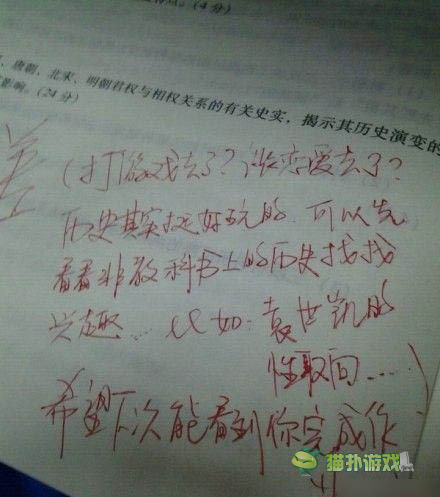 (4分)
、唐朝、北宋、明朝君权与相权关系的有关史实，揭示其历史演变的
影响。(24分)
差
(打游戏去了?谈恋爱去了?
历史其实挺好玩的 可以先
看看非教科书上的历史找找
兴趣... 比如:袁世凯的
性取向......)
希望下次能看到你完成作
业
猫扑游戏